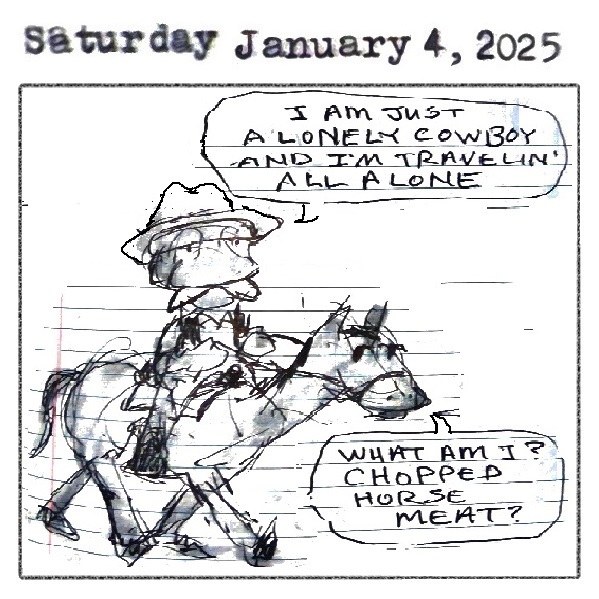 Saturday January 4, 2025
I AM JUST
A LONELY COWBOY
AND I'M TRAVELIN'
ALL ALONE
WHAT AM I?
CHOPPED
HORSE
MEAT?